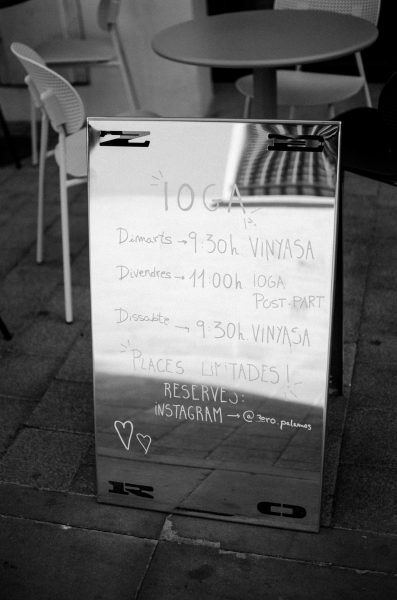 Z E
IOGA
Dimarts → 9:30h VINYASA
Divendres → 11:00h IOGA
POST-PART
Dissabte → 9:30h VINYASA
PLACES LIMITADES!
RESERVES:
INSTAGRAM → @3ero.palamos
R O